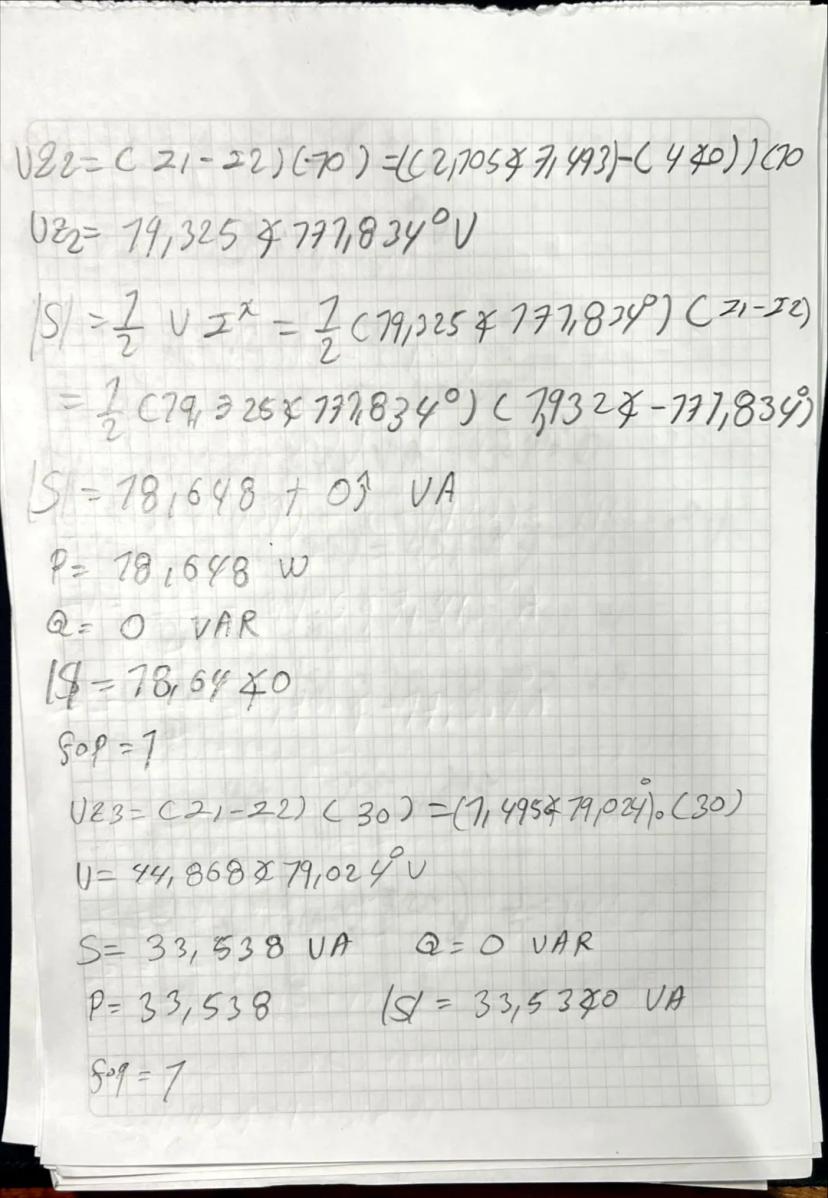 UZ2 = (I1 - I2)(-10) = ((2,105∡7,493) - (4∡0))(10
UZ2 = 19,325 ∡ 171,834° V
|S| = 1/2 U I* = 1/2 (19,325 ∡ 171,834°) (I1 - I2)
= 1/2 (19,325 ∡ 171,834°) (1,932 ∡ -171,834°)
|S| = 18,648 + 0j VA
P = 18,648 W
Q = 0 VAR
|S| = 18,64 ∡0
fop = 1
UZ3 = (I1 - I2) (30) = (1,495∡19,024°)·(30)
U = 44,868 ∡ 19,024° V
S = 33,538 VA Q = 0 VAR
P = 33,538 |S| = 33,53∡0 VA
fop = 1